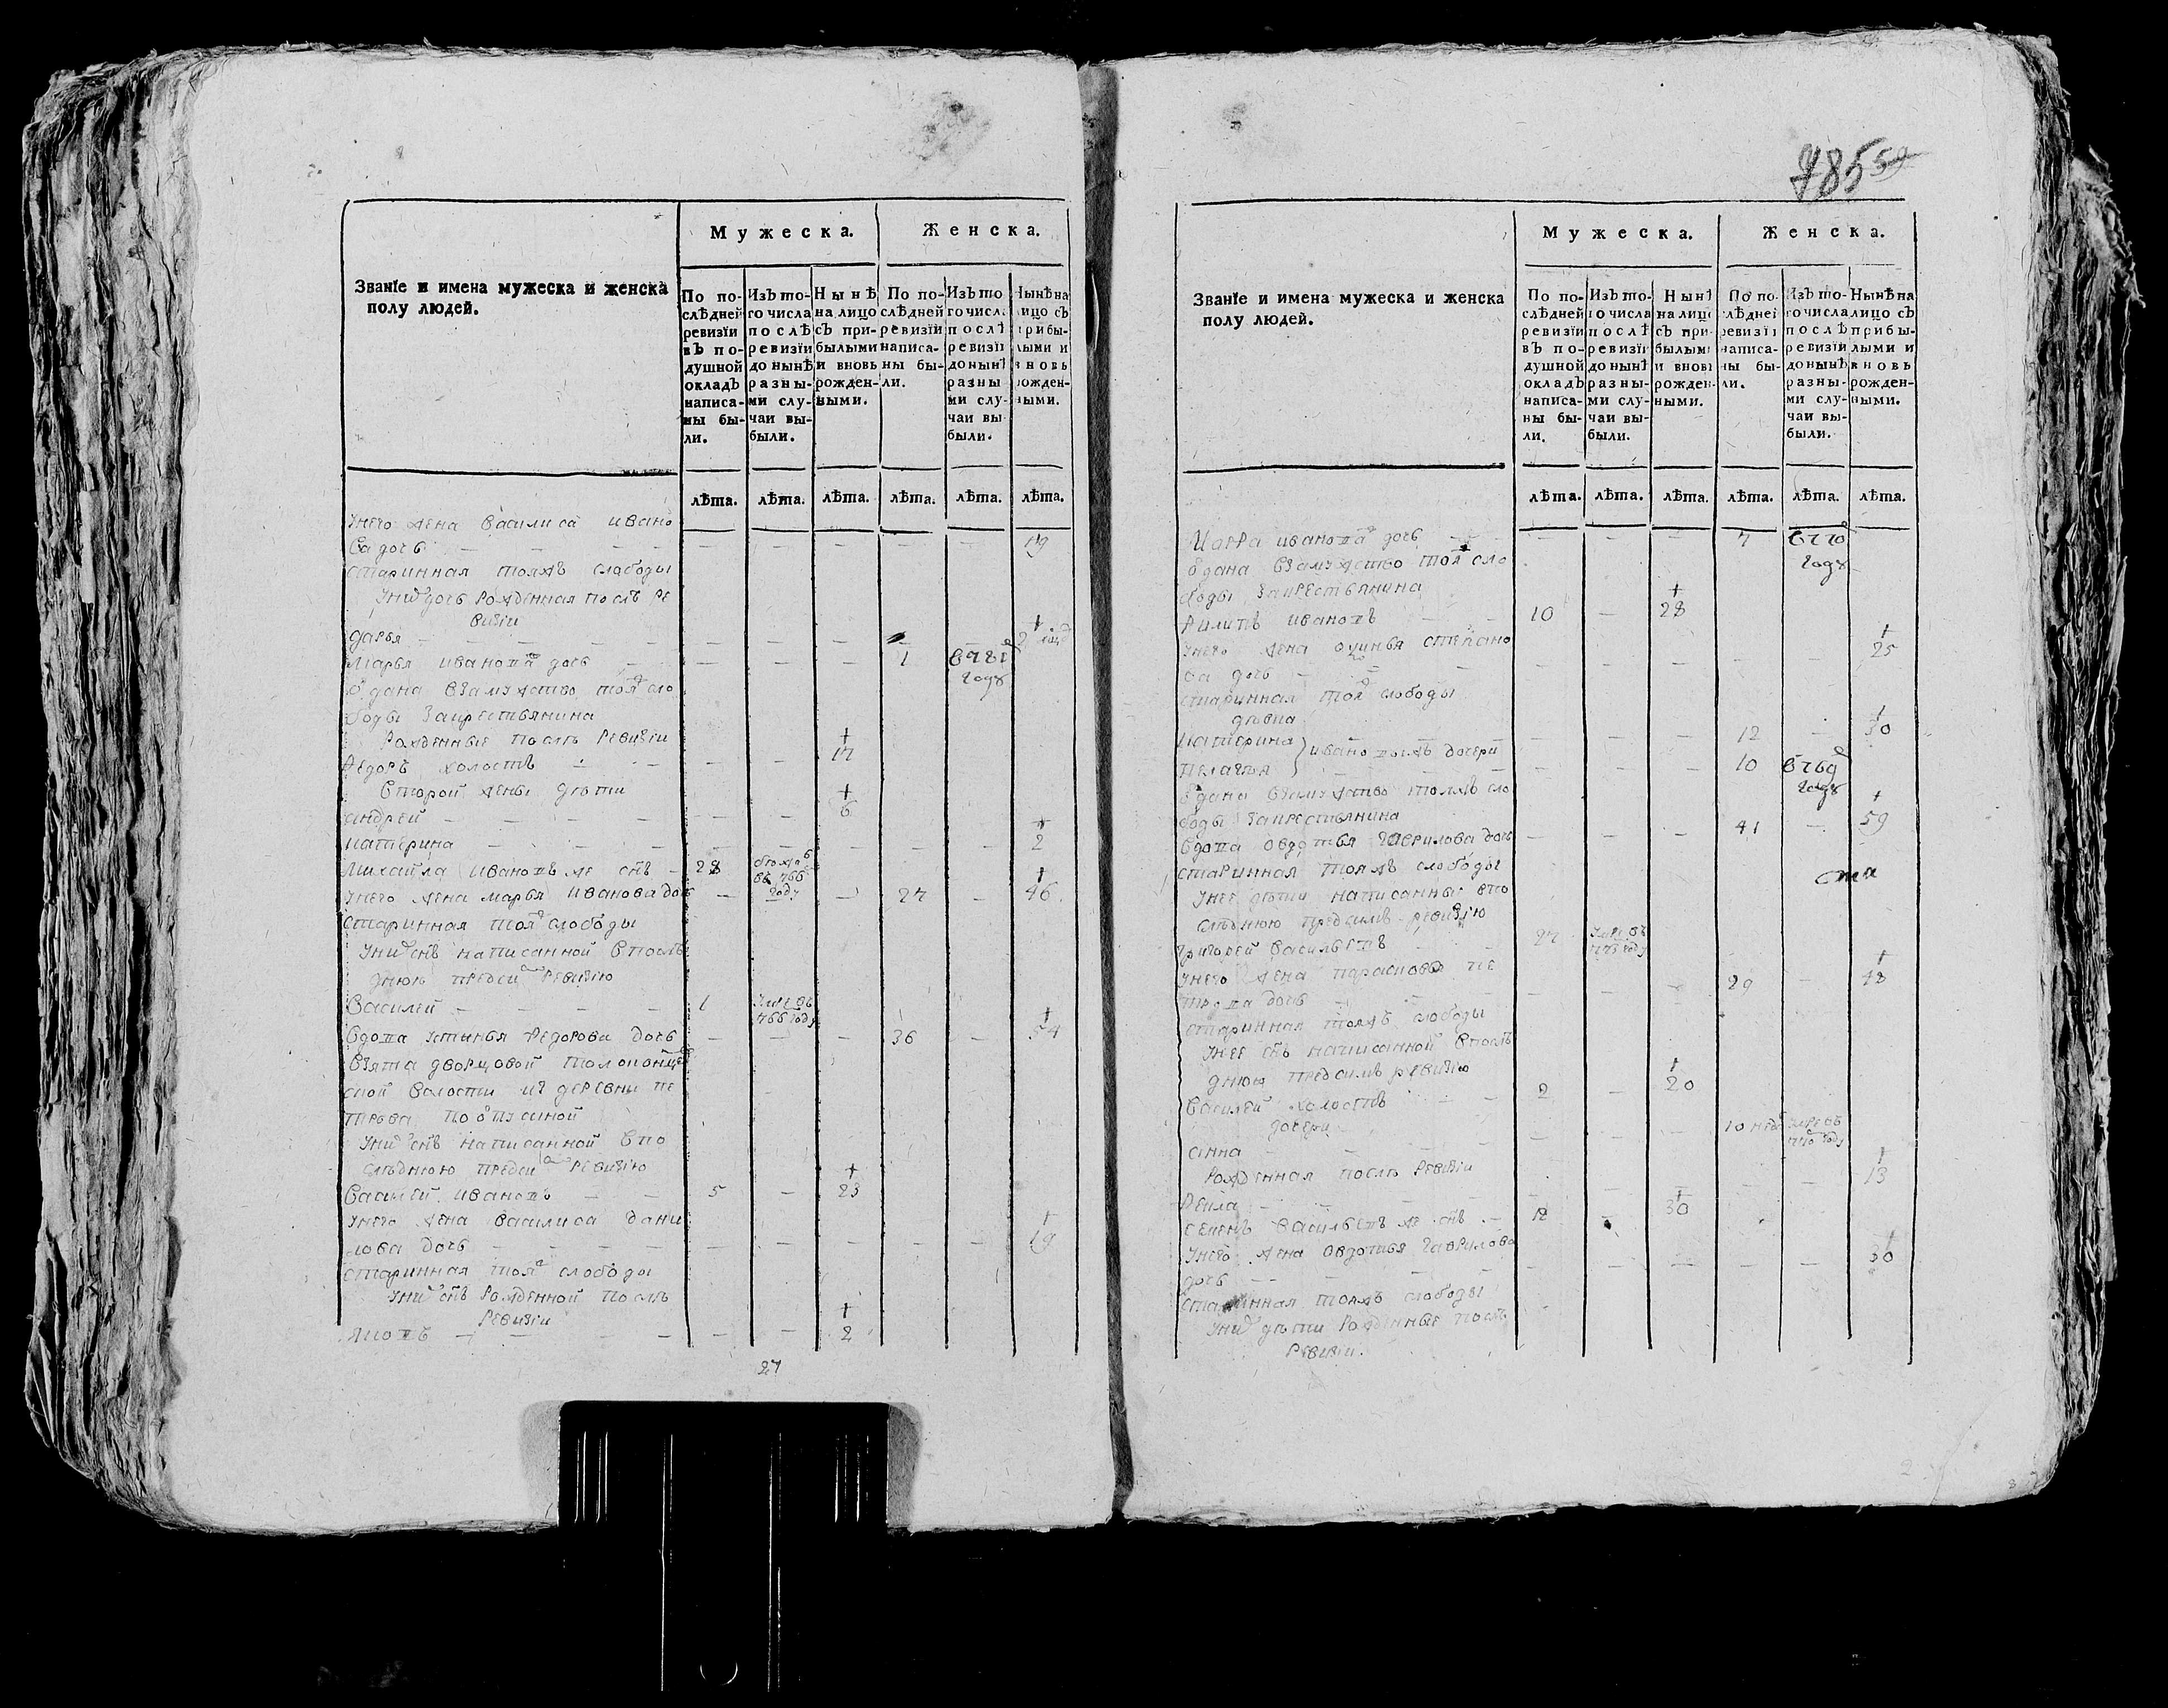 Званїе и имена мужеска и женска
полу людей.
Мужеска.
Женска.
По по-
слѣдней
ревизїи
вЪ по-
душной
окладЪ
написа-
ны бы-
ли.
ИзЪ то-
го числа
послѣ
ревизїи
до нынѣ
разны-
ми слу-
чаи вы-
были.
Нынѣ
на лицо
сЪ при-
былыми
и вновь
рожден-
ными.
По по-
слѣдней
ревизїи
написа-
ны бы-
ли.
ИзЪ то
го числа
послѣ
ревизїи
до нынѣ
разны
ми слу-
чаи вы
были.
Нынѣ на
лицо сЪ
прибы-
лыми и
вновь
рожден-
ными.
лѣта. лѣта. лѣта. лѣта. лѣта. лѣта.
унего жена василиса ивано
ва дочь 19
старинная тояжъ слободы
уних дочь рожденная послѣ ре
визіи
дарья 2
марья иванова дочь 1 в 781
году
одана взамужство тоя сло
боды закрестьянина
рожденные послѣ ревизіи
ѳедоръ холостъ 17
второй жены дѣти
андрей 6
катерина 2
михайла ивановъ же снъ 28 766
году
унего жена марья иванова дочь 27 46
старинная тоя слободы
уних снъ написанной впослѣ
днюю пред ревизію
василей 1 умре въ
766 году
вдова устинья ѳедорова дочь 36 54
взята дворцовой
ской волости из деревни пе
трова по отпускной
уних снъ написанной впо
слѣднюю пред ревизію
василей ивановъ 5 23
унего жена василиса дани
лова дочь 19
старинная тоя слободы
уних снъ рожденной послѣ
ревизіи
яковъ 2
27
785 59
Званїе и имена мужеска и женска
полу людей.
Мужеска.
Женска.
По по-
слѣдней
ревизїи
вЪ по-
душной
окладЪ
написа-
ны бы-
ли.
ИзЪ то-
го числа
послѣ
ревизїи
до нынѣ
разны-
ми слу-
чаи вы-
были.
Нынѣ
на лицо
сЪ при-
былыми
и вновь
рожден-
ными.
По по-
слѣдней
ревизїи
написа-
ны бы-
ли.
ИзЪ то-
го числа
послѣ
ревизїи
до нынѣ
разны-
ми слу-
чаи вы-
были.
Нынѣ на
лицо сЪ
прибы-
лыми и
вновь
рожден-
ными.
лѣта. лѣта. лѣта. лѣта. лѣта. лѣта.
иванова дочь 7 в 770
году
одана взамужство тоя сло
боды закрестьянина
ѳилипъ ивановъ 10 28
унего жена степано
ва дочь 25
старинная тоя слободы
дѣвка
катерина 12 30
ивановы жъ дочери
пелагея 10 в 769
году
одана взамужство тояжъ сло
боды закрестьянина
вдова овдотья гаврилова дочь 41 59
старинная тояжъ слободы
унее дѣти написанные впо
слѣднюю предсимъ ревизію
григорей васильевъ 27 умре въ
773 году
унего жена парасковья пе
трова дочь 29 48
старинная тояжъ слободы
унее снъ написанной впослѣ
днюю предсимъ ревизію
василей холостъ 2 20
дочери
анна 10 нед умре въ
770 году
рожденная послѣ ревизіи
ѳекла 13
семенъ васильевъ же снъ 12 30
унего жена овдотья гаврилова
дочь 30
старинная тояжъ слободы
уних дѣти рожденные послѣ
ревизіи